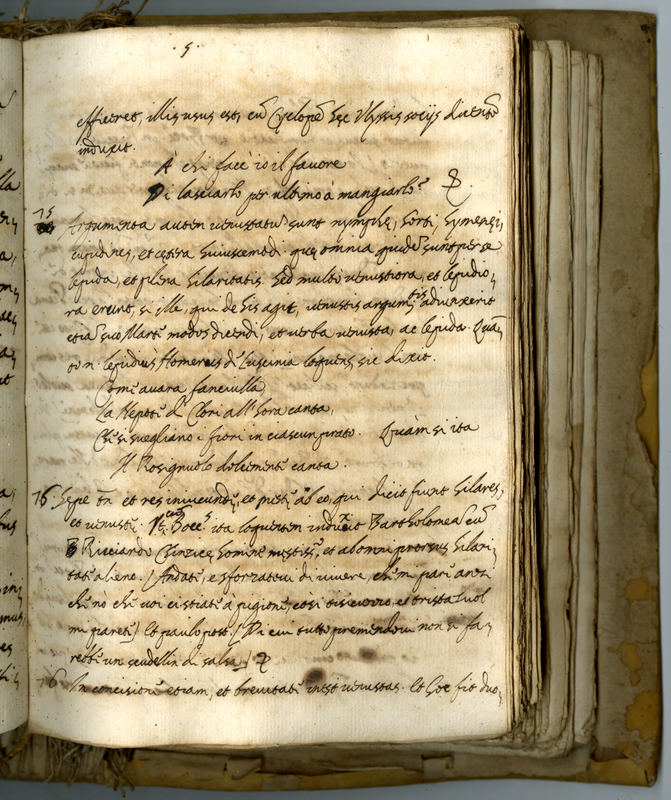 . 5 .
efficeret, illis usus est, cū Cyclopē hęc Ulyssis socijs dicentē
induxit.
A chi facc' io il favore
Di lasciarlo per ultimo à mangiarlo?
75 Argumenta autem venustatū sunt nymphę, horti, hymenęi,
cupidines, et cętera huiuscemodi quę omnia quidē sunt per se
lepida, et plena hilaritatis. Sed multò venustiora, et lepidio,
ra erunt, si ille, qui de his agit, venustis argum.tis adiunxerit
etiā suo Marte modos dicendi, et verba venusta, ac lepida. Quā,
to n. lepidius Homerus dē Luscinia loquens sic dixit.
Come avara fanciulla
La Nepote di Clori all'hora canta,
Che si svegliano i fiori in ciascun prato. Quàm si ita
Il Rosignuolo dolcemente canta.
76 Sępe tñ et res iniucundę, et tristes ab eo, qui dicit fiunt hilares,
et venustę. ita loquentem induxit Bartholomeā cū
Ricciardo Chinzica homine męstiss.o, et ab omni prorsus hilari,
tate alieno. (Andate, e sforzatevi di vivere, che mi pare anzi
che nò che voi ci stiate à pigione, così tisicuzzo, et tristanzuol
mi parete) Et paulo post. (Di cui tutto premendovi non si fa,
rebbe un scudellin di salsa.)
76 In concisione etiam, et brevitate inest venustas. Et hoc fit duo,